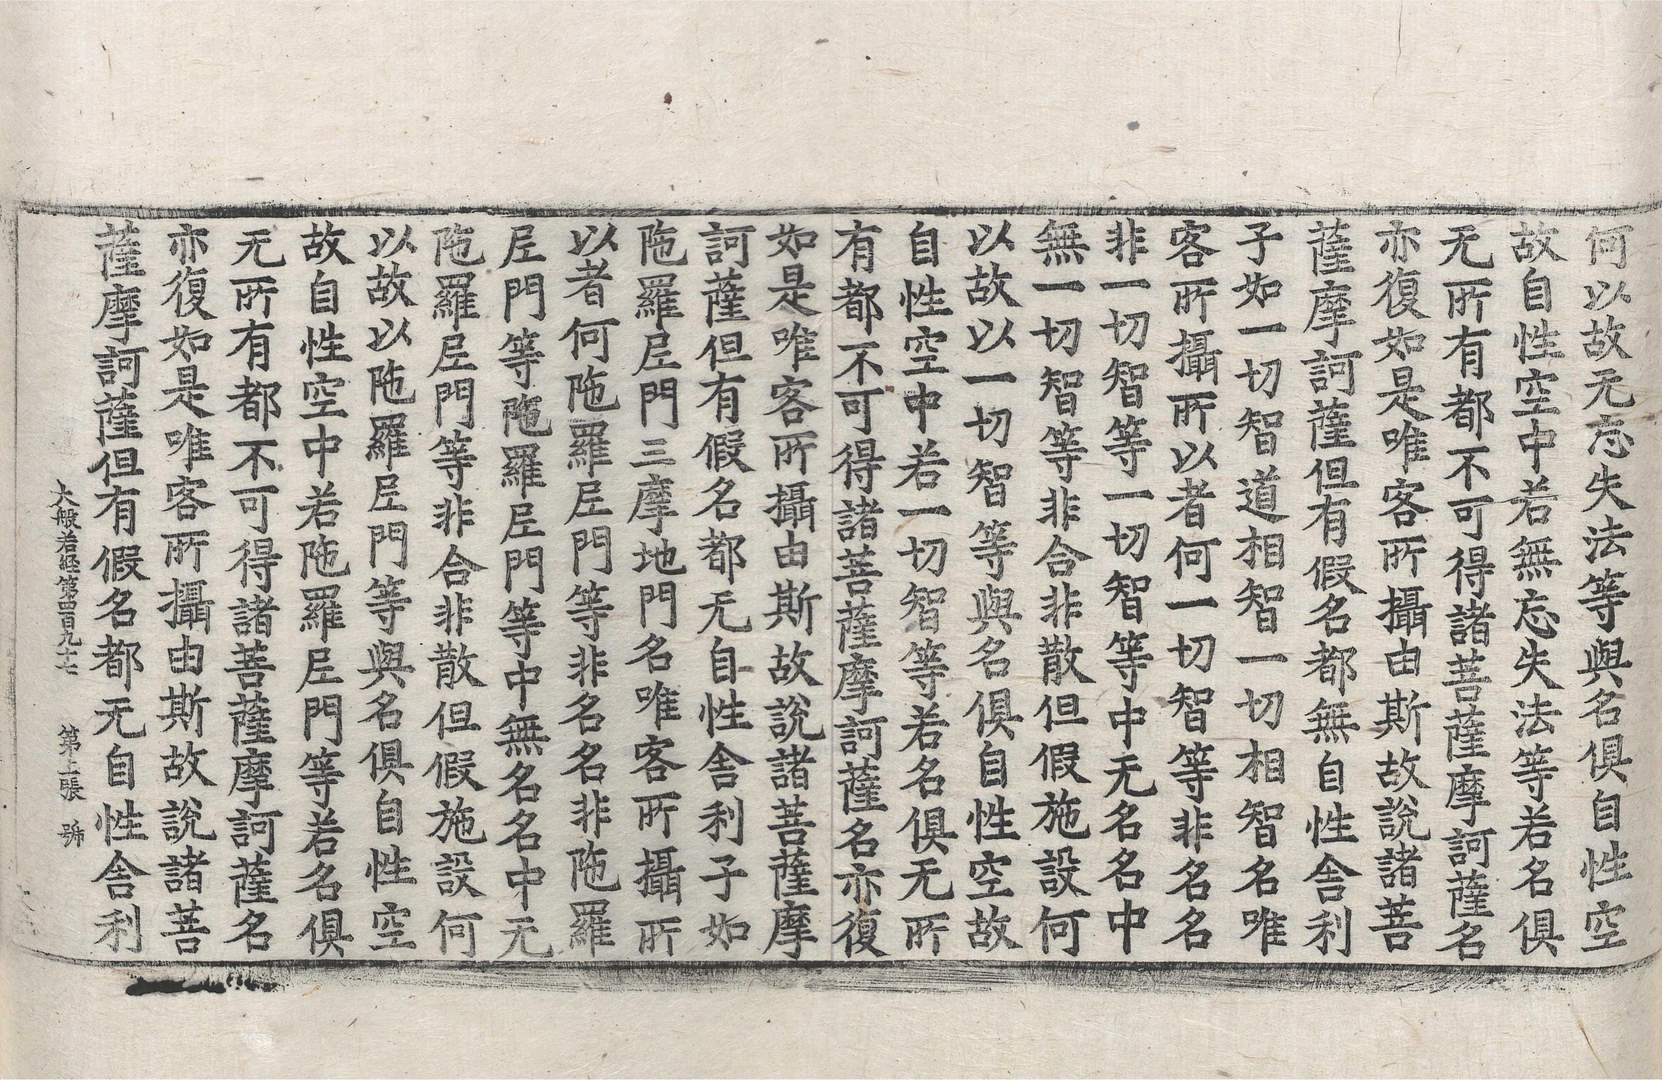 何以故无忘失法等與名俱自性空
故自性空中若無忘失法等若名俱
无所有都不可得諸菩薩摩訶薩名
亦復如是唯客所攝由斯故說諸菩
薩摩訶薩但有假名都無自性舍利
子如一切智道相智一切相智名唯
客所攝所以者何一切智等非名名
非一切智等一切智等中无名名中
無一切智等非合非散但假施設何
以故以一切智等與名俱自性空故
自性空中若一切智等若名俱无所
有都不可得諸菩薩摩訶薩名亦復
如是唯客所攝由斯故說諸菩薩摩
訶薩但有假名都无自性舍利子如
陁羅尼門三摩地門名唯客所攝所
以者何陁羅尼門等非名名非陁羅
尼門等陁羅尼門等中無名名中无
陁羅尼門等非合非散但假施設何
以故以陁羅尼門等與名俱自性空
故自性空中若陁羅尼門等若名俱
无所有都不可得諸菩薩摩訶薩名
亦復如是唯客所攝由斯故說諸菩
薩摩訶薩但有假名都无自性舍利
大般若経第四百九十七 第 張 號